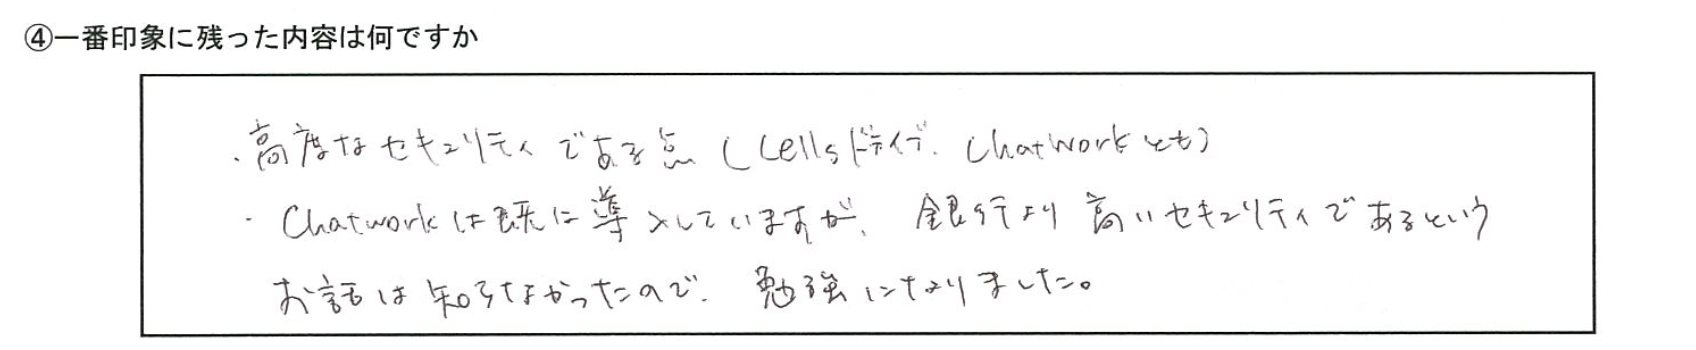 ④一番印象に残った内容は何ですか
・高度なセキュリティである点(Cellsドライブ、Chatworkとも)
・Chatworkは既に導入していますが、銀行より高いセキュリティであるという
お話は知らなかったので、勉強になりました。